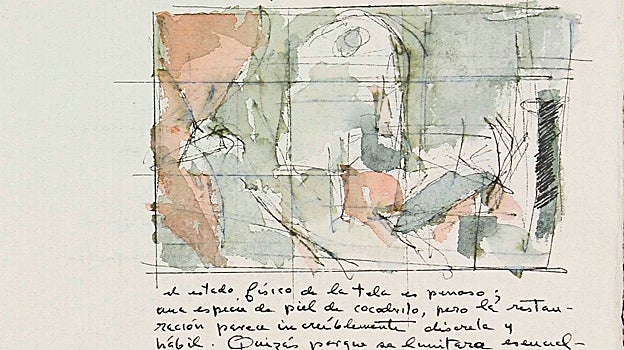 el estado físico de la tela es penoso;
una especie de piel de cocodrilo, pero la restau-
ración parece increíblemente discreta y
hábil. Quizás porque se limitara esencial-